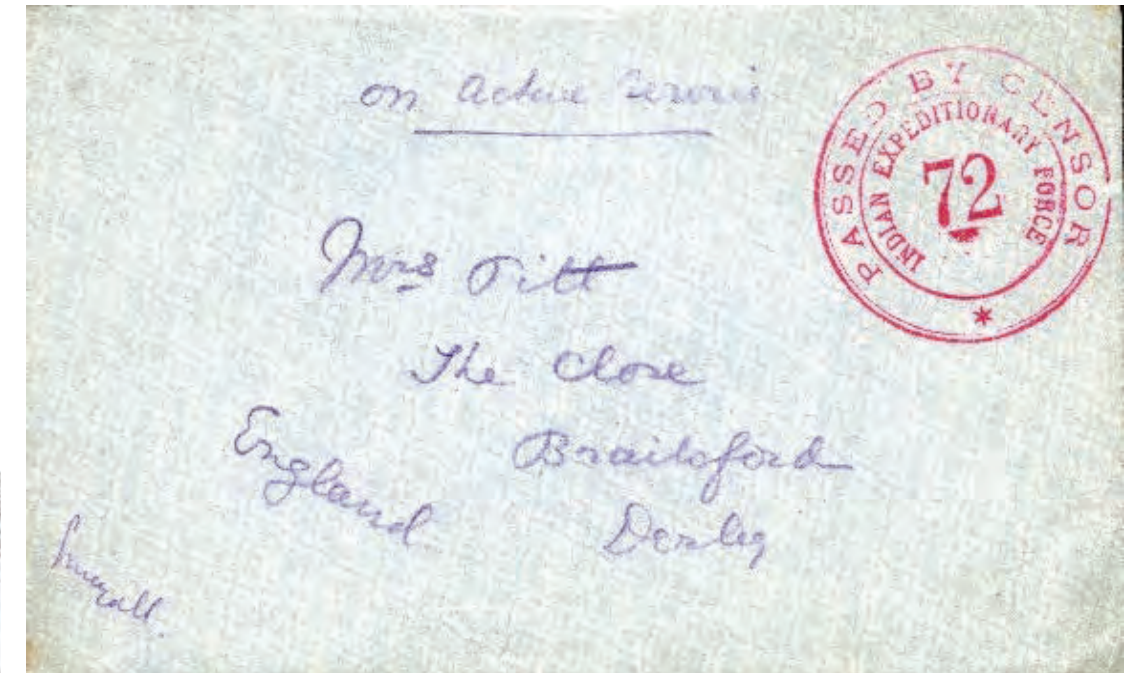 on Active Service
PASSED BY CENSOR
INDIAN EXPEDITIONARY FORCE
72
Mrs Titt
The Close
Brailsford
England
Derby